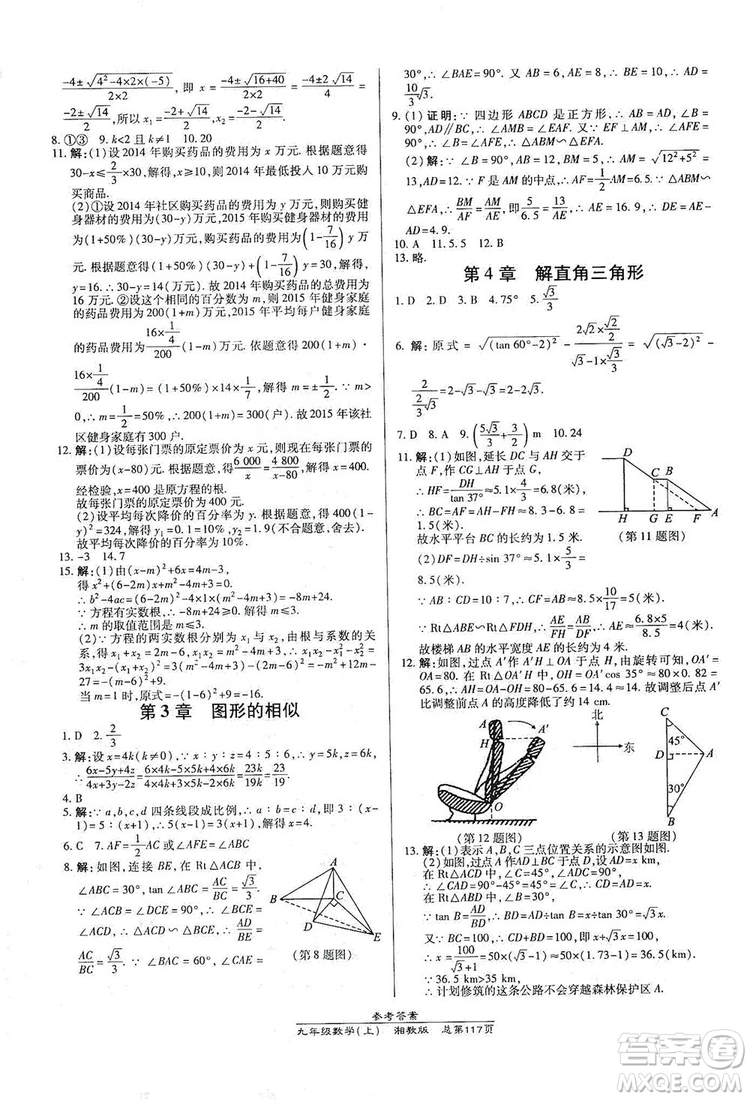 $\frac{-4\pm\sqrt{4^2-4\times2\times(-5)}}{2\times2}$，即 $x=\frac{-4\pm\sqrt{16+40}}{2\times2}=\frac{-2\pm\sqrt{14}}{2}=$
$\frac{-2\pm\sqrt{14}}{2}$,所以 $x_1=\frac{-2+\sqrt{14}}{2}$,$x_2=\frac{-2-\sqrt{14}}{2}$.
8. ①③ 9. k<2 且 k≠1 10. 20
11. 解:(1)设 2014 年购买药品的费用为 x 万元. 根据题意得
30-x≤$\frac{2}{3}$×30,解得 x≥10. 故 2014 年最低投入 10 万元购
买商品.
(2)①设 2014 年社区购买药品的费用为 y 万元,则购买健
身器材的费用为(30-y)万元,2015 年购买健身器材的费用
为(1+50%)(30-y)万元,购买药品的费用为$\left(1-\frac{7}{16}\right)$y 万
元. 根据题意得(1+50%)(30-y)+$\left(1-\frac{7}{16}\right)$y=30,解得
y=16. 故 2014 年购买药品的总费用为
16 万元. ②设这个相同的百分数为 m,则 2015 年健身家庭
的药品费用为 200(1+m),2015 年平均每户健身家庭的
药品费为$\frac{16\times\frac{1}{4}}{200}$(1-m)万元. 依题意得 200(1+m)·
$\frac{16\times\frac{1}{4}}{200}$(1-m)=(1+50%)×14×$\frac{1}{7}$,解得 m=±$\frac{1}{2}$. ∵m>
0,∴m=$\frac{1}{2}$=50%,∴200(1+m)=300(户). 故 2015 年该社
区健身家庭有 300 户.
12. 解:(1)设每张门票的原定票价为 x 元,则现在每张门票的
票价为(x-80)元. 根据题意得$\frac{6\,000}{x}=\frac{4\,800}{x-80}$,解得 x=400.
经检验,x=400 是原方程的根.
故每张门票的原定票价为 400 元.
(2)设平均每次降价的百分率为 y. 根据题意得 400(1-
y)²=324,解得 y₁=0.1,y₂=1.9(不合题意,舍去).
故平均每次降价的百分率为 10%.
13. -3 14. 7
15. 解:(1)由(x-m)²+6x=4m-3,
得 x²+(6-2m)x+m²-4m+3=0.
∴b²-4ac=(6-2m)²-4×1×(m²-4m+3)=-8m+24.
∵方程有实数根,∴-8m+24≥0,解得 m≤3.
∴m 的取值范围是 m≤3.
(2)∵方程的两实数根分别为 x₁ 与 x₂,由根与系数的关
系得 x₁+x₂=2m-6,x₁·x₂=m²-4m+3,∴x₁²+x₂²=
3x₁x₂-(x₁+x₂)²=3(m²-4m+3)-(2m-6)²=
-m²+12m-27=-(m-6)²+9. ∵m≤3,
当 m=1 时,原式=-(1-6)²+9=-16.
第 3 章 图形的相似
1. D 2. $\frac{2}{3}$
3. 解:设 x=4k(k≠0),∵x∶y∶z=4∶5∶6,∴y=5k,z=6k,
∴$\frac{6x-5y+4z}{4x+3y-2z}=\frac{6\times4k-5\times5k+4\times6k}{4\times4k+3\times5k-2\times6k}=\frac{23k}{19k}=\frac{23}{19}$.
4. B
5. 解:∵a,b,c,d 四条线段成比例,∴a∶b=c∶d,即 3∶(x-
1)=5∶(x+1),∴5(x-1)=3(x+1),解得 x=4.
6. C 7. AF=$\frac{1}{2}$AC 或∠AFE=∠ABC
8. 解:如图,连接 BE,在 Rt△ABC 中,
∠ABC=30°,tan∠ABC=$\frac{AC}{BC}=\frac{\sqrt{3}}{3}$.
∵∠ABC=∠DCE=90°,∴∠BCE=
∠ACD,∴△ACD∽△BCE,∴$\frac{AD}{BE}$=
$\frac{AC}{BC}=\frac{\sqrt{3}}{3}$. ∵∠BAC=60°,∠CAD=
A
B
C
D
E
(第 8 题图)
30°,∴∠BAE=90°. 又∵AE=6,AB=8,∴BE=10,∴AD=
$\frac{10}{3}\sqrt{3}$.
9. (1)证明:∵四边形 ABCD 是正方形,∴AB=AD,∠B=
90°,AD∥BC,∴∠AMB=∠EAF. 又∵EF⊥AM,∴∠AFE=
90°,∴∠B=∠AFE=90°,∴△ABM∽△EFA.
(2)解:∵∠B=90°,AB=12,BM=5,∴AM=$\sqrt{12^2+5^2}$=
13,AD=12. ∵F 是 AM 的中点,∴AF=$\frac{1}{2}$AM=6.5. ∵△ABM∽
△EFA,∴$\frac{BM}{AF}=\frac{AM}{AE}$,即$\frac{5}{6.5}=\frac{13}{AE}$,∴AE=16.9,∴DE=AE
-AD=4.9.
10. A 11. 5.5 12. B
13. 略.
第 4 章 解直角三角形
1. D 2. D 3. B 4. 75° 5. $\frac{\sqrt{3}}{3}$
6. 解:原式=$\sqrt{(\tan60°-2)^2}-\frac{2\sqrt{2}\times\frac{\sqrt{2}}{2}}{\sqrt{3}-1\times\frac{\sqrt{3}}{3}}=\sqrt{(\sqrt{3}-2)^2}-$
$\frac{2}{\frac{2}{3}\sqrt{3}}$=2-$\sqrt{3}$-$\sqrt{3}$=2-2$\sqrt{3}$.
7. D 8. A 9. $\left(\frac{5\sqrt{3}}{3}+\frac{3}{2}\right)$m 10. 24
11. 解:(1)如图,延长 DC 与 AH 交于
点 F,作 CG⊥AH 于点 G,BE⊥AH 于点 E.
∴HF=$\frac{DH}{\tan37°}$≈5.1÷$\frac{3}{4}$=6.8(米).
故水平平台 BC 的长度为 6.8-5.1=1.7(米).
(2)DF=DH÷sin37°≈5.1÷$\frac{3}{5}$=
8.5(米).
D
C
B
H
G
E
F
A
(第 11 题图)
∵AB∶CD=10∶7,∴CF∶DF=10∶17,∴AB=CF=8.5×$\frac{10}{17}$=5(米).
∵Rt△AEB∽Rt△FHD,∴$\frac{AE}{FH}=\frac{AB}{FD}$,∴AE=$\frac{6.8\times5}{8.5}$=4(米).
故楼梯 AB 的水平宽度 AE=4 米.
12. 解:如图,过点 A′作 A′H⊥OA 于点 H,由旋转可知,OA′=
OA=80. 在 Rt△OA′H 中,OH=OA′cos 35°≈80×0.82=
65.6,∴AH=OA-OH=80-65.6=14.4≈14. 故调整后点
A′比调整前点 A 的高度降低了约 14 cm.
A
A′
H
O
(第 12 题图)
北
东
C
45°
D
A
30°
B
(第 13 题图)
13. 解:(1)表示 A,B,C 三点位置关系的示意图如图.
(2)如图,过点 A 作 AD⊥BC 于点 D,设 AD=x km,
在 Rt△ACD 中,∵∠ACD=45°,∠ADC=90°,
∴∠CAD=90°-45°=45°,∴CD=AD=x km.
在 Rt△ABD 中,∵∠B=30°,
∵tan B=$\frac{AD}{BD}$,∴BD=AD÷tan B=x÷tan 30°=$\sqrt{3}$x km.
又∵BC=100 km,∴CD+BD=100,即 x+$\sqrt{3}$x=100,
∴x=$\frac{100}{\sqrt{3}+1}$=50×($\sqrt{3}$-1)=50$\sqrt{3}$-50≈36.5(km).
∵36.5 km>35 km,
∴计划修筑的这条公路不会穿越森林保护区.
参考答案
九年级数学(上) 湘教版 总第117页
答案圈
MXQE.COM